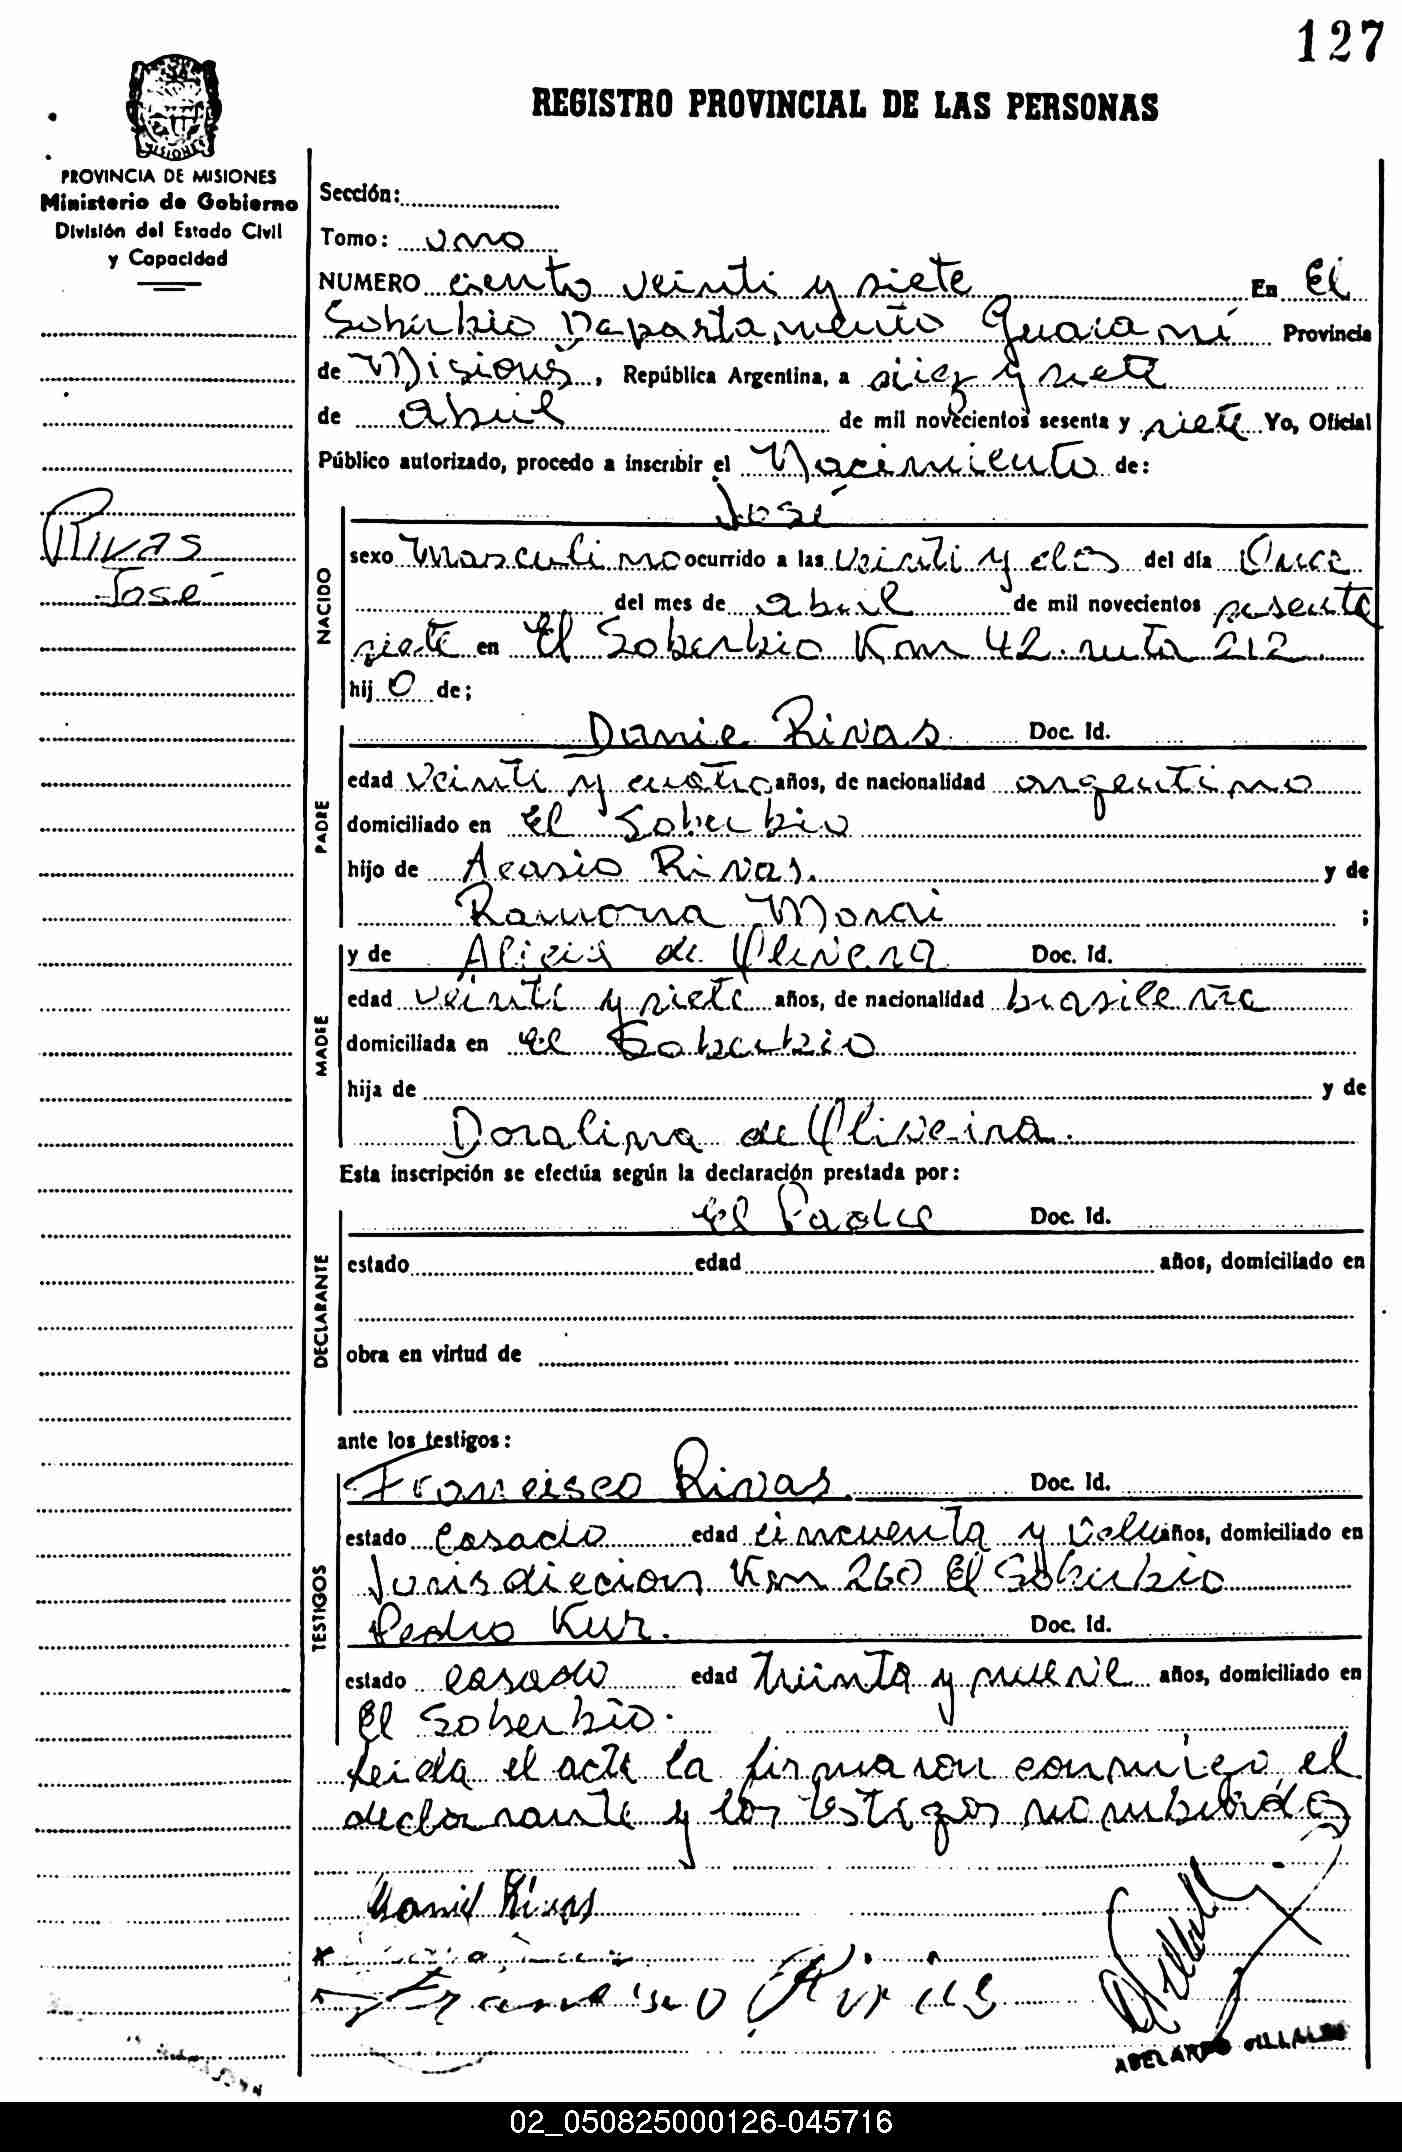 127
REGISTRO PROVINCIAL DE LAS PERSONAS
MISIONES
PROVINCIA DE MISIONES
Ministerio de Gobierno
División del Estado Civil
y Capacidad
Rivas
José
Sección:
Tomo: uno
NUMERO ciento veinti y siete En El
Soberbio Departamento Guarani Provincia
de Misiones, República Argentina, a diez y siete
de abril de mil novecientos sesenta y siete Yo, Oficial
Público autorizado, procedo a inscribir el Nacimiento de:
José
NACIDO
sexo Masculino ocurrido a las veinti y dos del día Once
del mes de abril de mil novecientos sesenta
siete en El Soberbio Km 42. ruta 212.
hijo de;
PADRE
Danie Rivas Doc. Id.
edad veinti y cuatro años, de nacionalidad argentino
domiciliado en El Soberbio
hijo de Acasio Rivas. y de
Ramona ;
MADRE
y de Alicia de Olivera Doc. Id.
edad veinti y siete años, de nacionalidad brasileña
domiciliada en El Soberbio
hija de y de
Doralina de Oliveira.
Esta inscripción se efectúa según la declaración prestada por:
DECLARANTE
El Padre Doc. Id.
estado edad años, domiciliado en
obra en virtud de
ante los testigos:
TESTIGOS
Francisco Rivas. Doc. Id.
estado casado edad cincuenta y años, domiciliado en
Jurisdiccion Km 260 El Soberbio
Pedro Kur. Doc. Id.
estado casado edad treinta y nueve años, domiciliado en
El Soberbio.
Leida el acta la firmaron conmigo, el
declarante y los testigos nombrados
Daniel Rivas
Francisco Rivas
ABELARDO
02_050825000126-045716